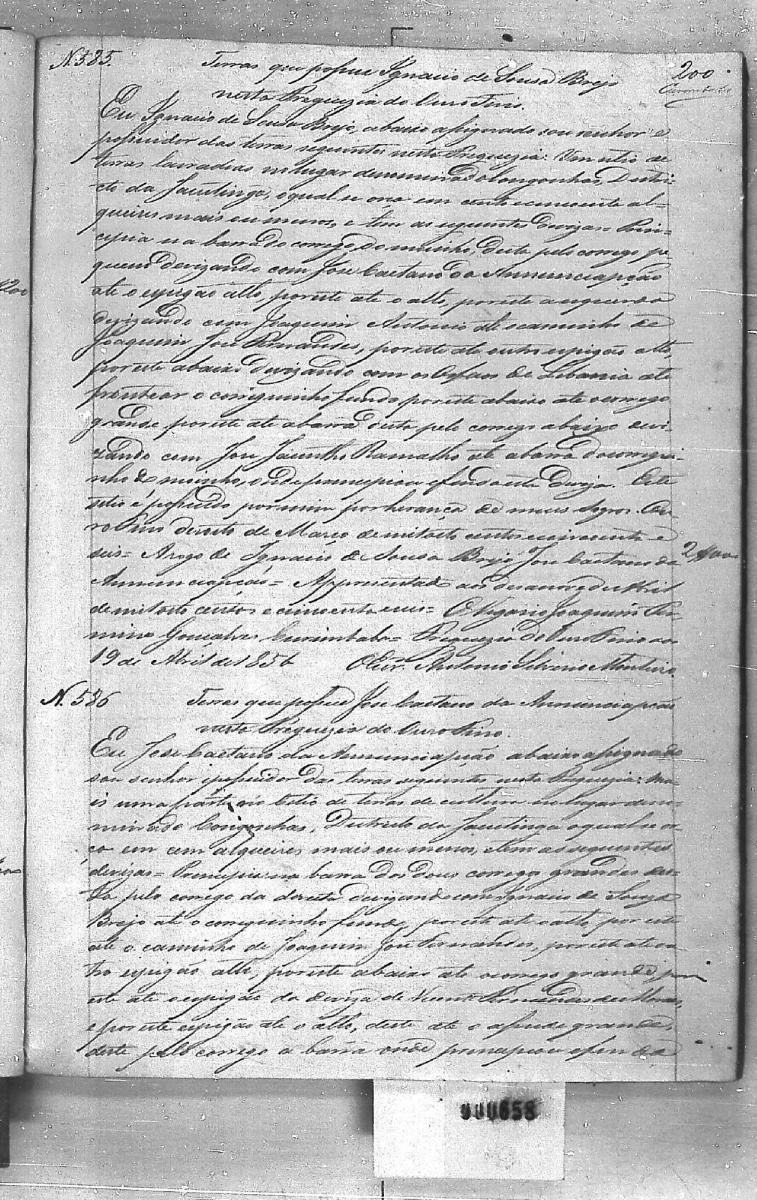 N. 535. Terras que possue Ignacio de Sousa Brejo 200.
nesta Freguezia do Ouro Fino.
Eu Ignacio de Sousa Brejo, abaixo assignado sou senhor e
possuidor das terras seguintes nesta Freguezia: Um sitio de
terras lavradias no lugar denominado Congonhas, Distri-
cto da Jacutinga, o qual se orça em cento e cincoenta al-
queires mais ou menos, e tem as seguintes devizas= Prin-
cipia na barra do corrego do moinho, deste pelo corrego pe-
queno devizando com Jose Caetano da Annunciapção
até o espigão alto, por este até o alto, por este a esquerda
devizando com Joaquim Antonio até o caminho de
Joaquim Jose Fernandes, por este até outro espigão alto,
por este abaixo devizando com os Orfãos de Libania até
frentear o correguinho fundo por este abaixo até o corrego
grande, por este até a barra desta pelo corrego abaixo devi-
zando com Jose Jacintho Ramalho até a barra do corregui-
nho do moinho, onde principiou e finda esta deviza. Este
sitio é possuido por mim por herança de meus sogros. Ou-
ro Fino dezoito de Março de mil oito centos e cincoenta e
seis= A rogo de Ignacio de Sousa Brejo, Jose Caetano da 2$400
Annunciapção= Appresentado aos desanove de Abril
de mil oito centos e cincoenta e seis= O Vigario Joaquim Fir-
mino Gonçalves Curimbaba= Freguezia do Ouro Fino aos
19 de Abril de 1856 O Escr. Antonio Silverio Monteiro.
N. 536 Terras que possue Jose Caetano da Annunciapção
nesta Freguezia do Ouro Fino.
Eu Jose Caetano da Annunciapção abaixo assignado
sou senhor e possuidor das terras seguintes nesta Freguezia: Ma-
is uma parte no Citio de terras de cultura no lugar deno-
minado Congonhas, Districto da Jacutinga o qual se or-
ça em cem alqueires mais ou menos, e tem as seguintes
devizas= Principia na barra dos dous corregos grandes des-
ta pelo corrego da direita devizando com Ignacio de Souza
Brejo até o correguinho fundo, por este até o alto, por este
até o caminho de Joaquim José Fernandes, por este até ou-
tro espigão alto, por este abaixo até o corrego grande por
este até o espigão da deviza de Vicente Fernandes de Moraes,
e por este espigão até o alto, deste até o açude grande,
deste pelo corrego a barra onde principiou e finda
000658